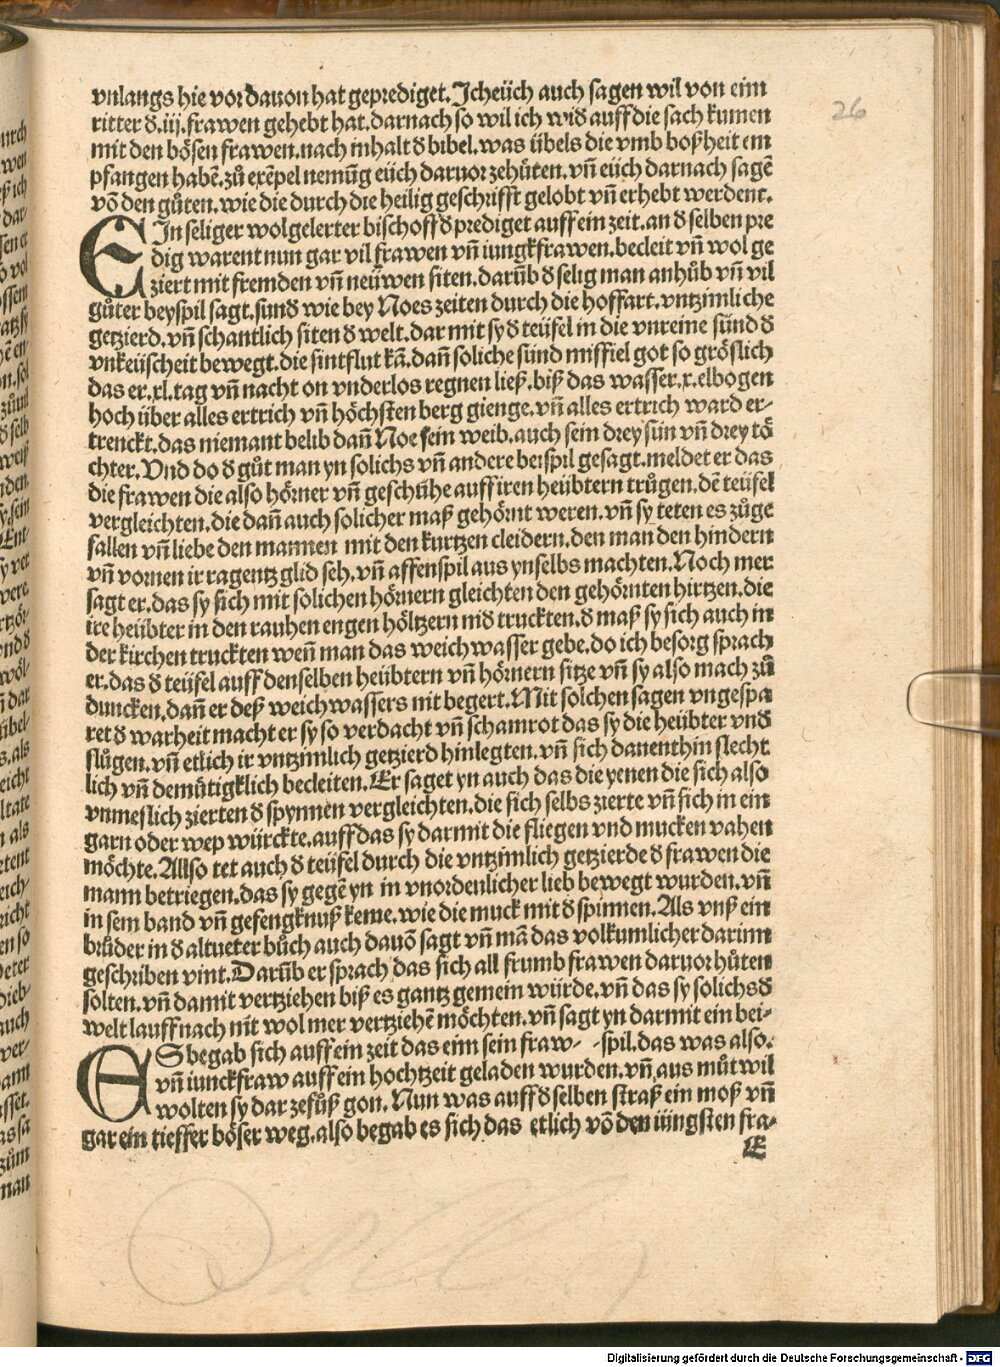 26
vnlangs hie vor dauon hat geprediget. Ich eüch auch sagen wil von eim
ritter ð.iij.frawen gehebt hat.darnach so wil ich wið auff die sach kumen
mit den bösen frawen.nach inhalt ð bibel.was übels die vmb boßheit em
pfangen habē.zů exēpel nemūg eüch daruor zehüten.vñ eüch darnach sagē
vō den gůten.wie die durch die heilig geschrifft gelobt vñ erhebt werdent.
EIn seliger wolgelerter bischoff ð prediget auff ein zeit.an ð selben pre
dig warent nun gar vil frawen vñ iungkfrawen.becleit vñ wol ge
ziert mit fremden vñ neüwen siten.darūb ð selig man anhůb vñ vil
gůter beyspil sagt.sunð wie bey Noes zeiten durch die hoffart.vntzimliche
getzierd.vñ schantlich siten ð welt.dar mit sy ð teüfel in die vnreine sünd ð
vnkeüscheit bewegt.die sintflut kā.dañ soliche sünd missiel got so gröslich
das er.xl.tag vñ nacht on vnderlos regnen ließ.biß das wasser.x.elbogen
hoch über alles ertrich vñ höchsten berg gienge.vñ alles ertrich ward er-
trenckt.das niemant belib dañ Noe sein weib.auch sein drey sün vñ drey tö
chter.Vnd do ð gůt man yn solichs vñ andere beispil gesagt.meldet er das
die frawen die also hörner vñ geschühe auff iren heübtern trůgen.dē teüfel
vergleichten.die dañ auch solicher maß gehörnt weren.vñ sy teten es zůge
fallen vñ liebe den mannen mit den kurtzen cleidern.den man den hindern
vñ vornen ir ragentz glid seh.vñ affenspil aus ynselbs machten.Noch mer
sagt er.das sy sich mit solichen hörnern gleichten den gehörnten hirtzen.die
ire heübter in den rauhen engen höltzern nið truckten.ð maß sy sich auch in
der kirchen truckten weñ man das weich wasser gebe.do ich besorg sprach
er.das ð teüfel auff denselben heübtern vñ hörnern sitze vñ sy also mach zů
duncken.dañ er deß weich wassers nit begert.Mit solchen sagen vngespa
ret ð warheit macht er sy so verdacht vñ schamrot das sy die heübter vnð
slůgen.vñ etlich ir vntzimlich getzierd hinlegten.vñ sich dauenthin slecht
lich vñ demütigklich becleiten.Er saget yn auch das die yenen die sich also
vnmeslich zierten ð spynnen vergleichten.die sich selbs zierte vñ sich in ein
garn oder wep würckte.auff das sy darmit die fliegen vnd mucken vahen
möchte.Allso tet auch ð teüfel durch die vntzimlich getzierde ð frawen die
mann betriegen.das sy gegē yn in vnordenlicher lieb bewegt wurden.vñ
in sein band vñ gefengknuß keme.wie die muck mit ð spinnen.Als vnß ein
brůder in ð altueter bůch auch dauō sagt vñ mā das volkumlicher darinn
geschriben vint.Darūb er sprach das sich all frumb frawen daruor hüten
solten.vñ damit vertziehen biß es gantz gemein würde.vñ das sy solichs ð
welt lauff nach nit wol mer vertziehē möchten.vñ sagt yn darmit ein bei-
ES begab sich auff ein zeit das eim sein fraw- -spil.das was also.
vñ iunckfraw auff ein hochtzeit geladen wurden.vñ aus můtwil
wolten sy dar zefůß gon. Nun was auff ð selben straß ein moß vñ
gar ein tieffer böser weg.also begab es sich das etlich vō den iüngsten fra-
E
Digitalisierung gefördert durch die Deutsche Forschungsgemeinschaft - DFG